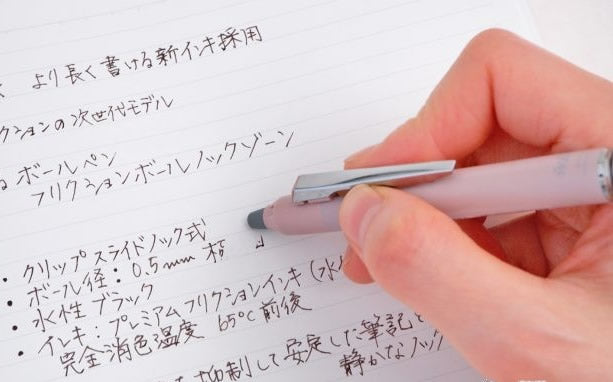 より長く書ける新インキ採用
クションの次世代モデル
るボールペン
フリクションボールノックゾーン
・クリップスライドノック式
・ボール径:0.5mm
・水性ブラック
・インキ:プレミアムフリクションインキ(水
完全消色温度 65℃前後
抑制して安定した筆記と
静かなノック